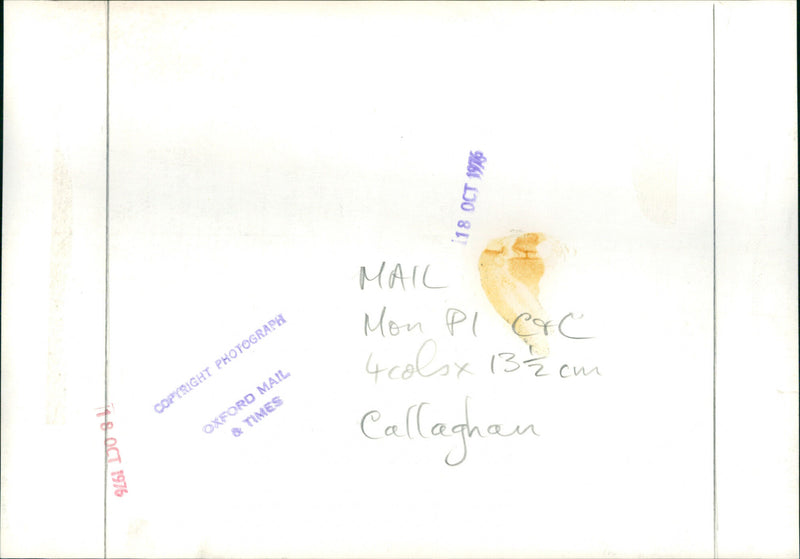 18 OCT 1976
MAIL
Mon P1 C&C
4cols x 13½ cm
Callaghan
COPYRIGHT PHOTOGRAPH
OXFORD MAIL
& TIMES
18 OCT 1976